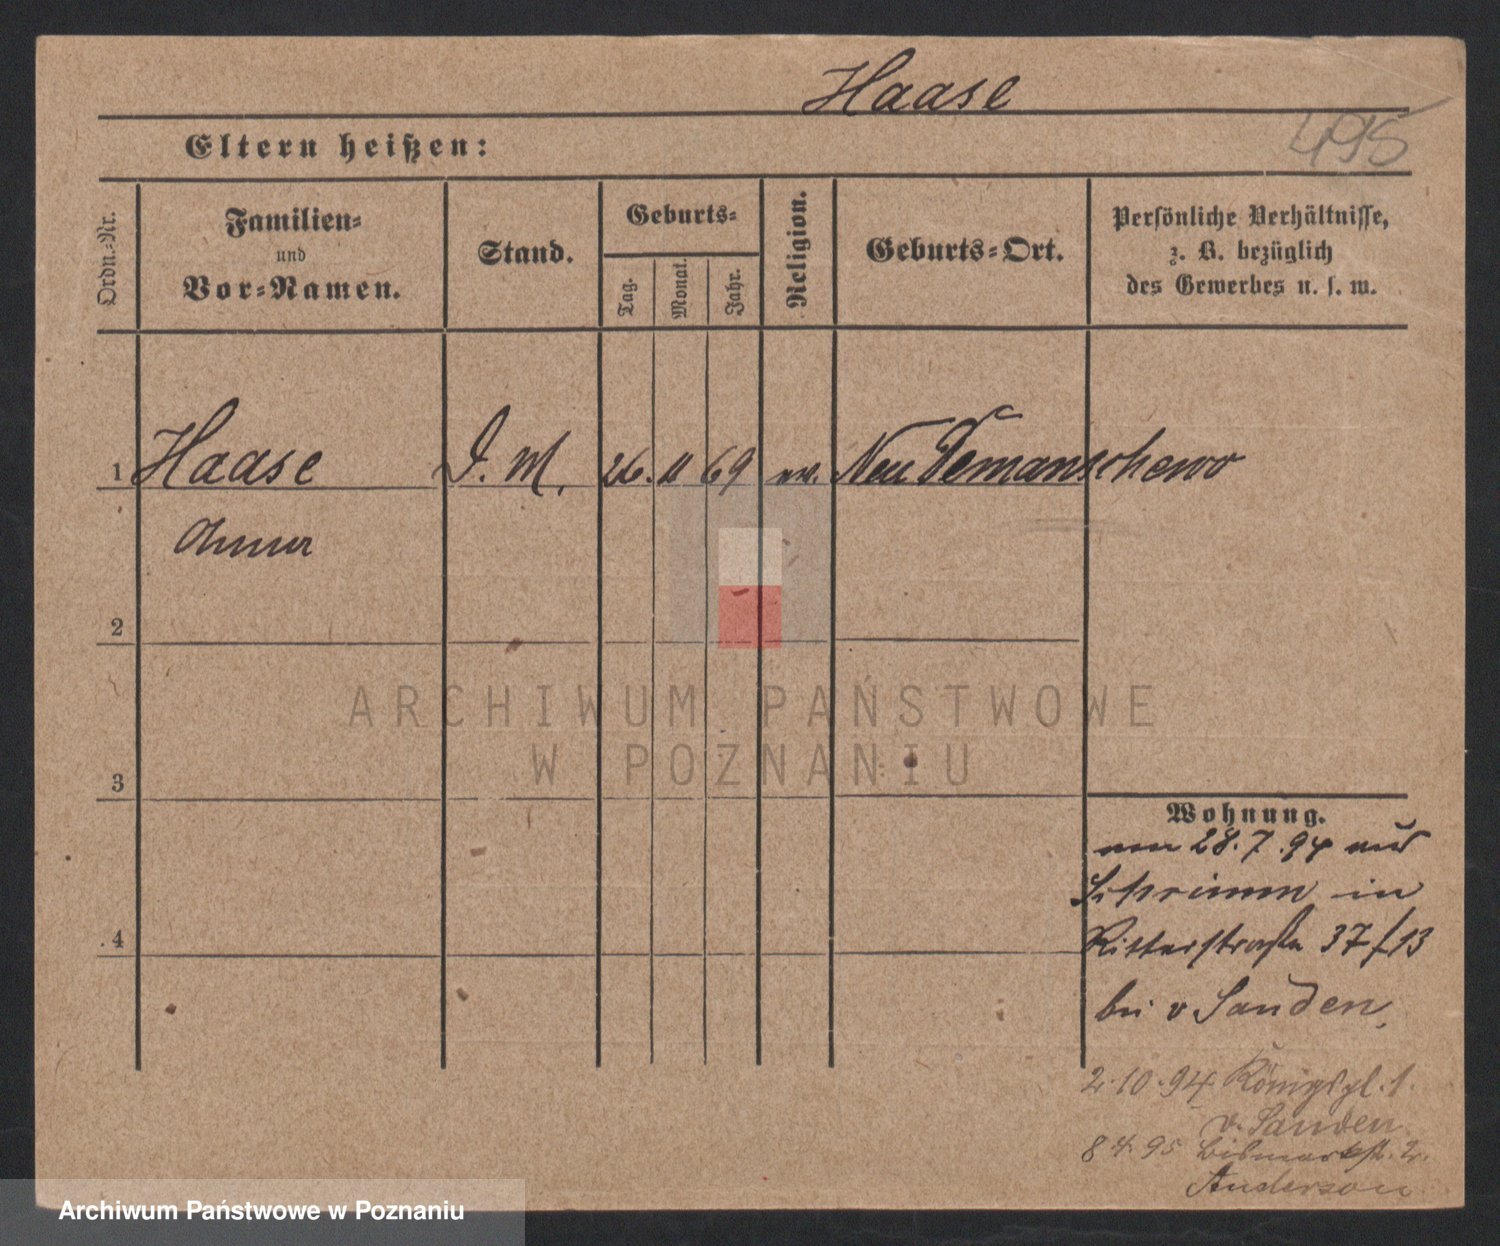 Haase
495
Eltern heißen:
Ordn.-Nr.
Familien-
und
Vor-Namen.
Stand.
Geburts-
Tag.
Monat.
Jahr.
Religion.
Geburts-Ort.
Persönliche Verhältnisse,
z. B. bezüglich
des Gewerbes u. s. w.
1 Haase D. M. 26. 11 69 ev. Neu Demanschewo
Anna
2
3
4
Wohnung.
am 28.7.94 aus
Schrimm in
Ritterstraße 37/13
bei v Sanden,
2.10.94 Königspl. 1.
v. Sanden
8 4. 95 Bismarckstr. 2.
Anderson
ARCHIWUM PAŃSTWOWE
W POZNANIU
Archiwum Państwowe w Poznaniu